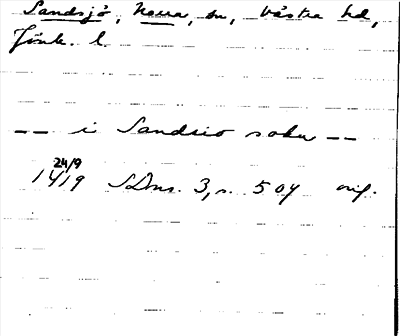 Sandsjö, Norra, sn, Västra hd,
Jönk. l.
-- i Sandsio sokn --
24/9
1419 SDns. 3, s. 504 orig.